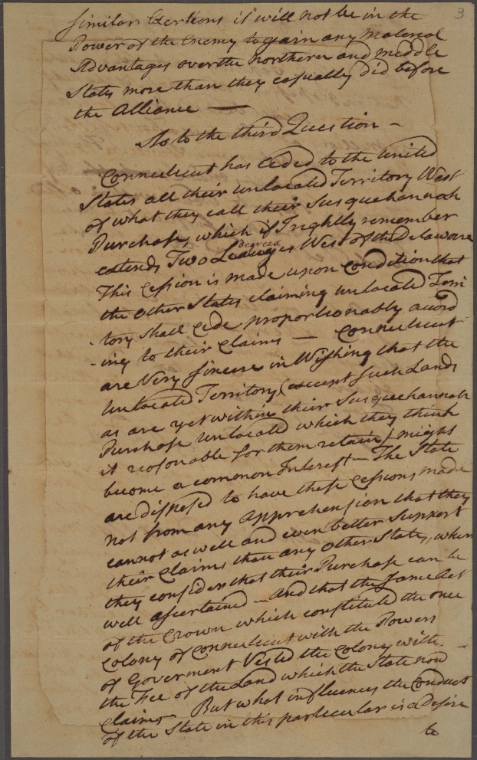 3
similar Exertions it will not be in the
Power of the Enemy to gain any material
Advantages over the Northern and middle
States more than they casually did before
the Alliance —
As to the third Question —
Connecticut has Ceded to the United
States all their unlocated Territory West
of what they call their Susquehannah
Purchase, which if I rightly remember
degrees
extends Two West of the Delaware
This Cession is made upon Condition that
the other States claiming unlocated Terri
-tory shall Cede proportionably accord
-ing to their Claims — Connecticut
are Very sincere in Wishing that the
Unlocated Territory (except such Lands
as are yet within their Susquehannah
Purchase unlocated which they think
it reasonable for them retain) might
become a common Interest — The State
are disposed to have these Cessions made
not from any Apprehension that they
cannot as well and even better Support
their Claims than any other State, when
they consider that their Purchase can be
well ascertained — and that the same Act
of the Crown which constituted the once
Colony of Connecticut with the Powers
of Goverment Vested the Colony with
the Fee of the Land which the State now
claims — But what influences the Conduct
of the State in this particular is a desire
to